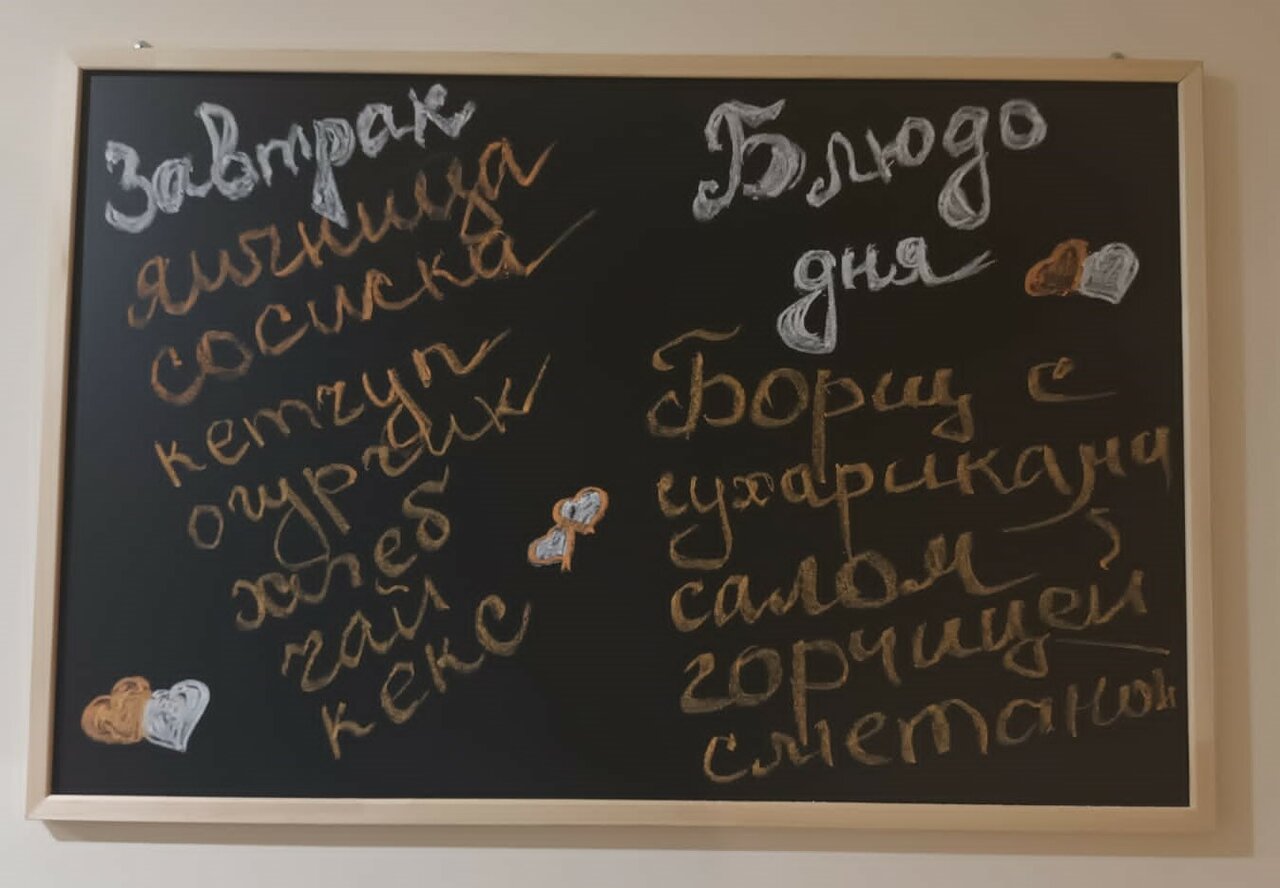 Завтрак
яичница
сосиска
кетчуп
огурчик
хлеб
чай
кекс
Блюдо
дня
Борщ с
сухариками
салом
горчицей
сметаной